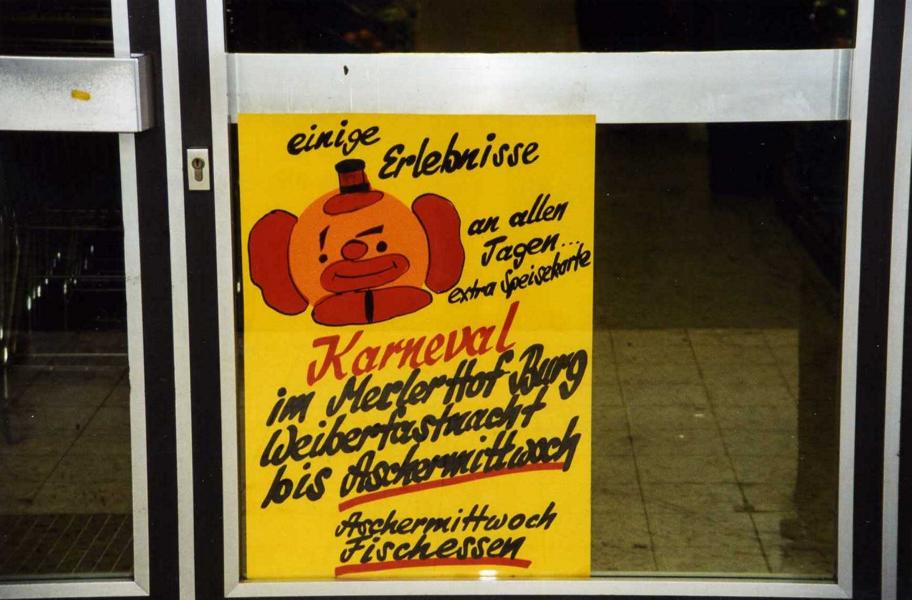 einige
Erlebnisse
an allen
Tagen...
extra Speisekarte
Karneval
im Merler Hof Burg
Weiberfastnacht
bis Aschermittwoch
Aschermittwoch
Fischessen